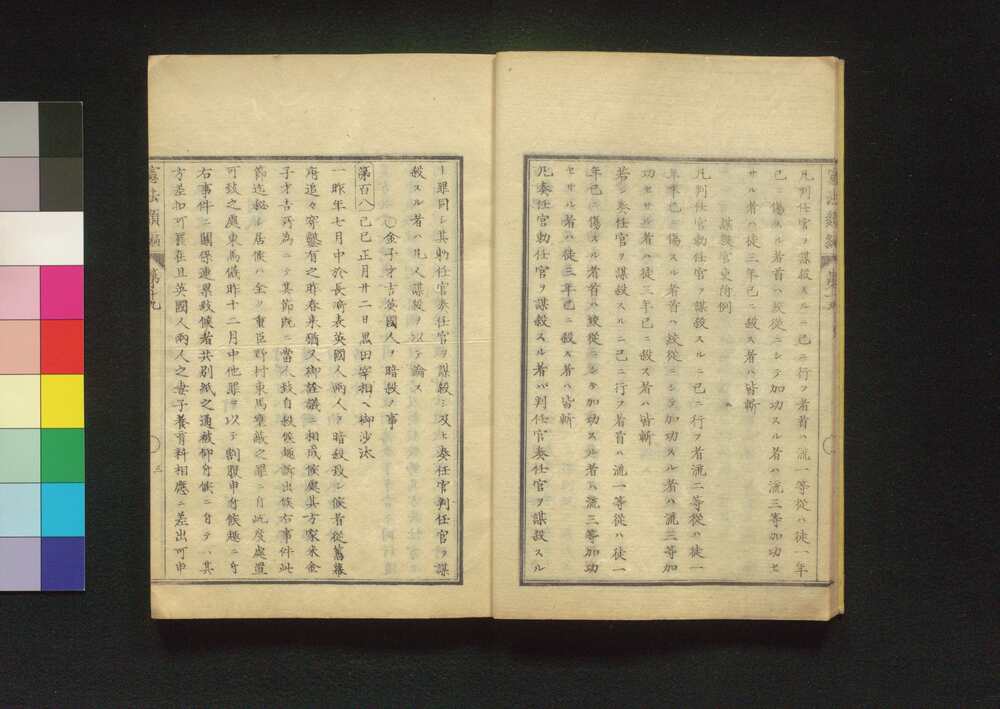 凡判任官ヲ謀殺スルニ已ニ行フ者首ハ流一等從ハ徒一年
已ニ傷スル者首ハ絞從ニシテ加功スル者ハ流三等加功セ
サル者ハ徒三年已ニ殺ス者ハ皆斬
謀殺官吏附例
凡判任官勅任官ヲ謀殺スルニ已ニ行フ者流二等從ハ徒一
年半已ニ傷スル者首ハ絞從ニシテ加功スル者ハ流三等加
功セサル者ハ徒三年已ニ殺ス者ハ皆斬
若シ奏任官ヲ謀殺スルニ已ニ行ヲ者首ハ流一等從ハ徒一
年已ニ傷スル者首ハ絞從ニシテ加功スル者ハ流三等加功
セサル者ハ徒三年已ニ殺ス者ハ皆斬
凡奏任官勅任官ヲ謀殺スル者ハ判任官奏任官ヲ謀殺スル
ト罪同シ其勅任官奏任官ヲ謀殺シ及ヒ奏任官判任官ヲ謀
殺スル者ハ凡人謀殺ヲ以テ論ス
第百八 己巳正月廿二日黒田宰相ヘ御沙汰
○金子才吉英國人ヲ暗殺ノ事
一昨年七月中於長崎表英國人兩人ヲ暗殺致シ候者從舊幕
府追々寄鑿有之昨春来猶又御詮議ニ相成候處其方家来金
子才吉所為ニテ其節既ニ當人致自殺候趣訴出候右事件此
節迄秘シ居候ハ全ク重臣野村東馬壅蔽之罪ニ付屹度處置
可致之處東馬儀昨十二月中他罪ヲ以テ割腹申付候趣ニ付
右事件ニ關係連累致候者共別紙之通被仰付候ニ付テハ其
方差扣可罷在且英國人兩人之妻子養育料相應ニ差出可申
憲法類編 第十九
三